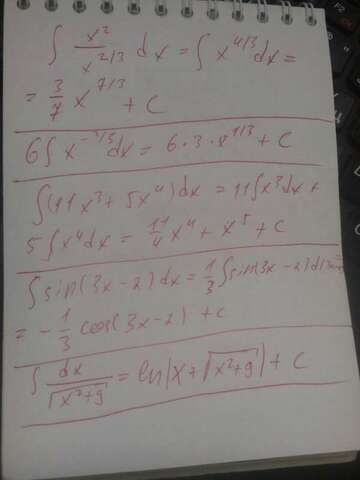 ∫ x²/x^(2/3) dx = ∫ x^(4/3) dx =
= 3/7 x^(7/3) + C
6∫ x^(-2/3) dx = 6·3·x^(1/3) + C
∫(11x³ + 5x⁴)dx = 11∫x³dx +
5∫x⁴dx = 11/4 x⁴ + x⁵ + C
∫sin(3x-2)dx = 1/3 ∫sin(3x-2)d(3x-
= -1/3 cos(3x-2) + C
∫ dx/√(x²+9) = ln|x+√(x²+9)| + C